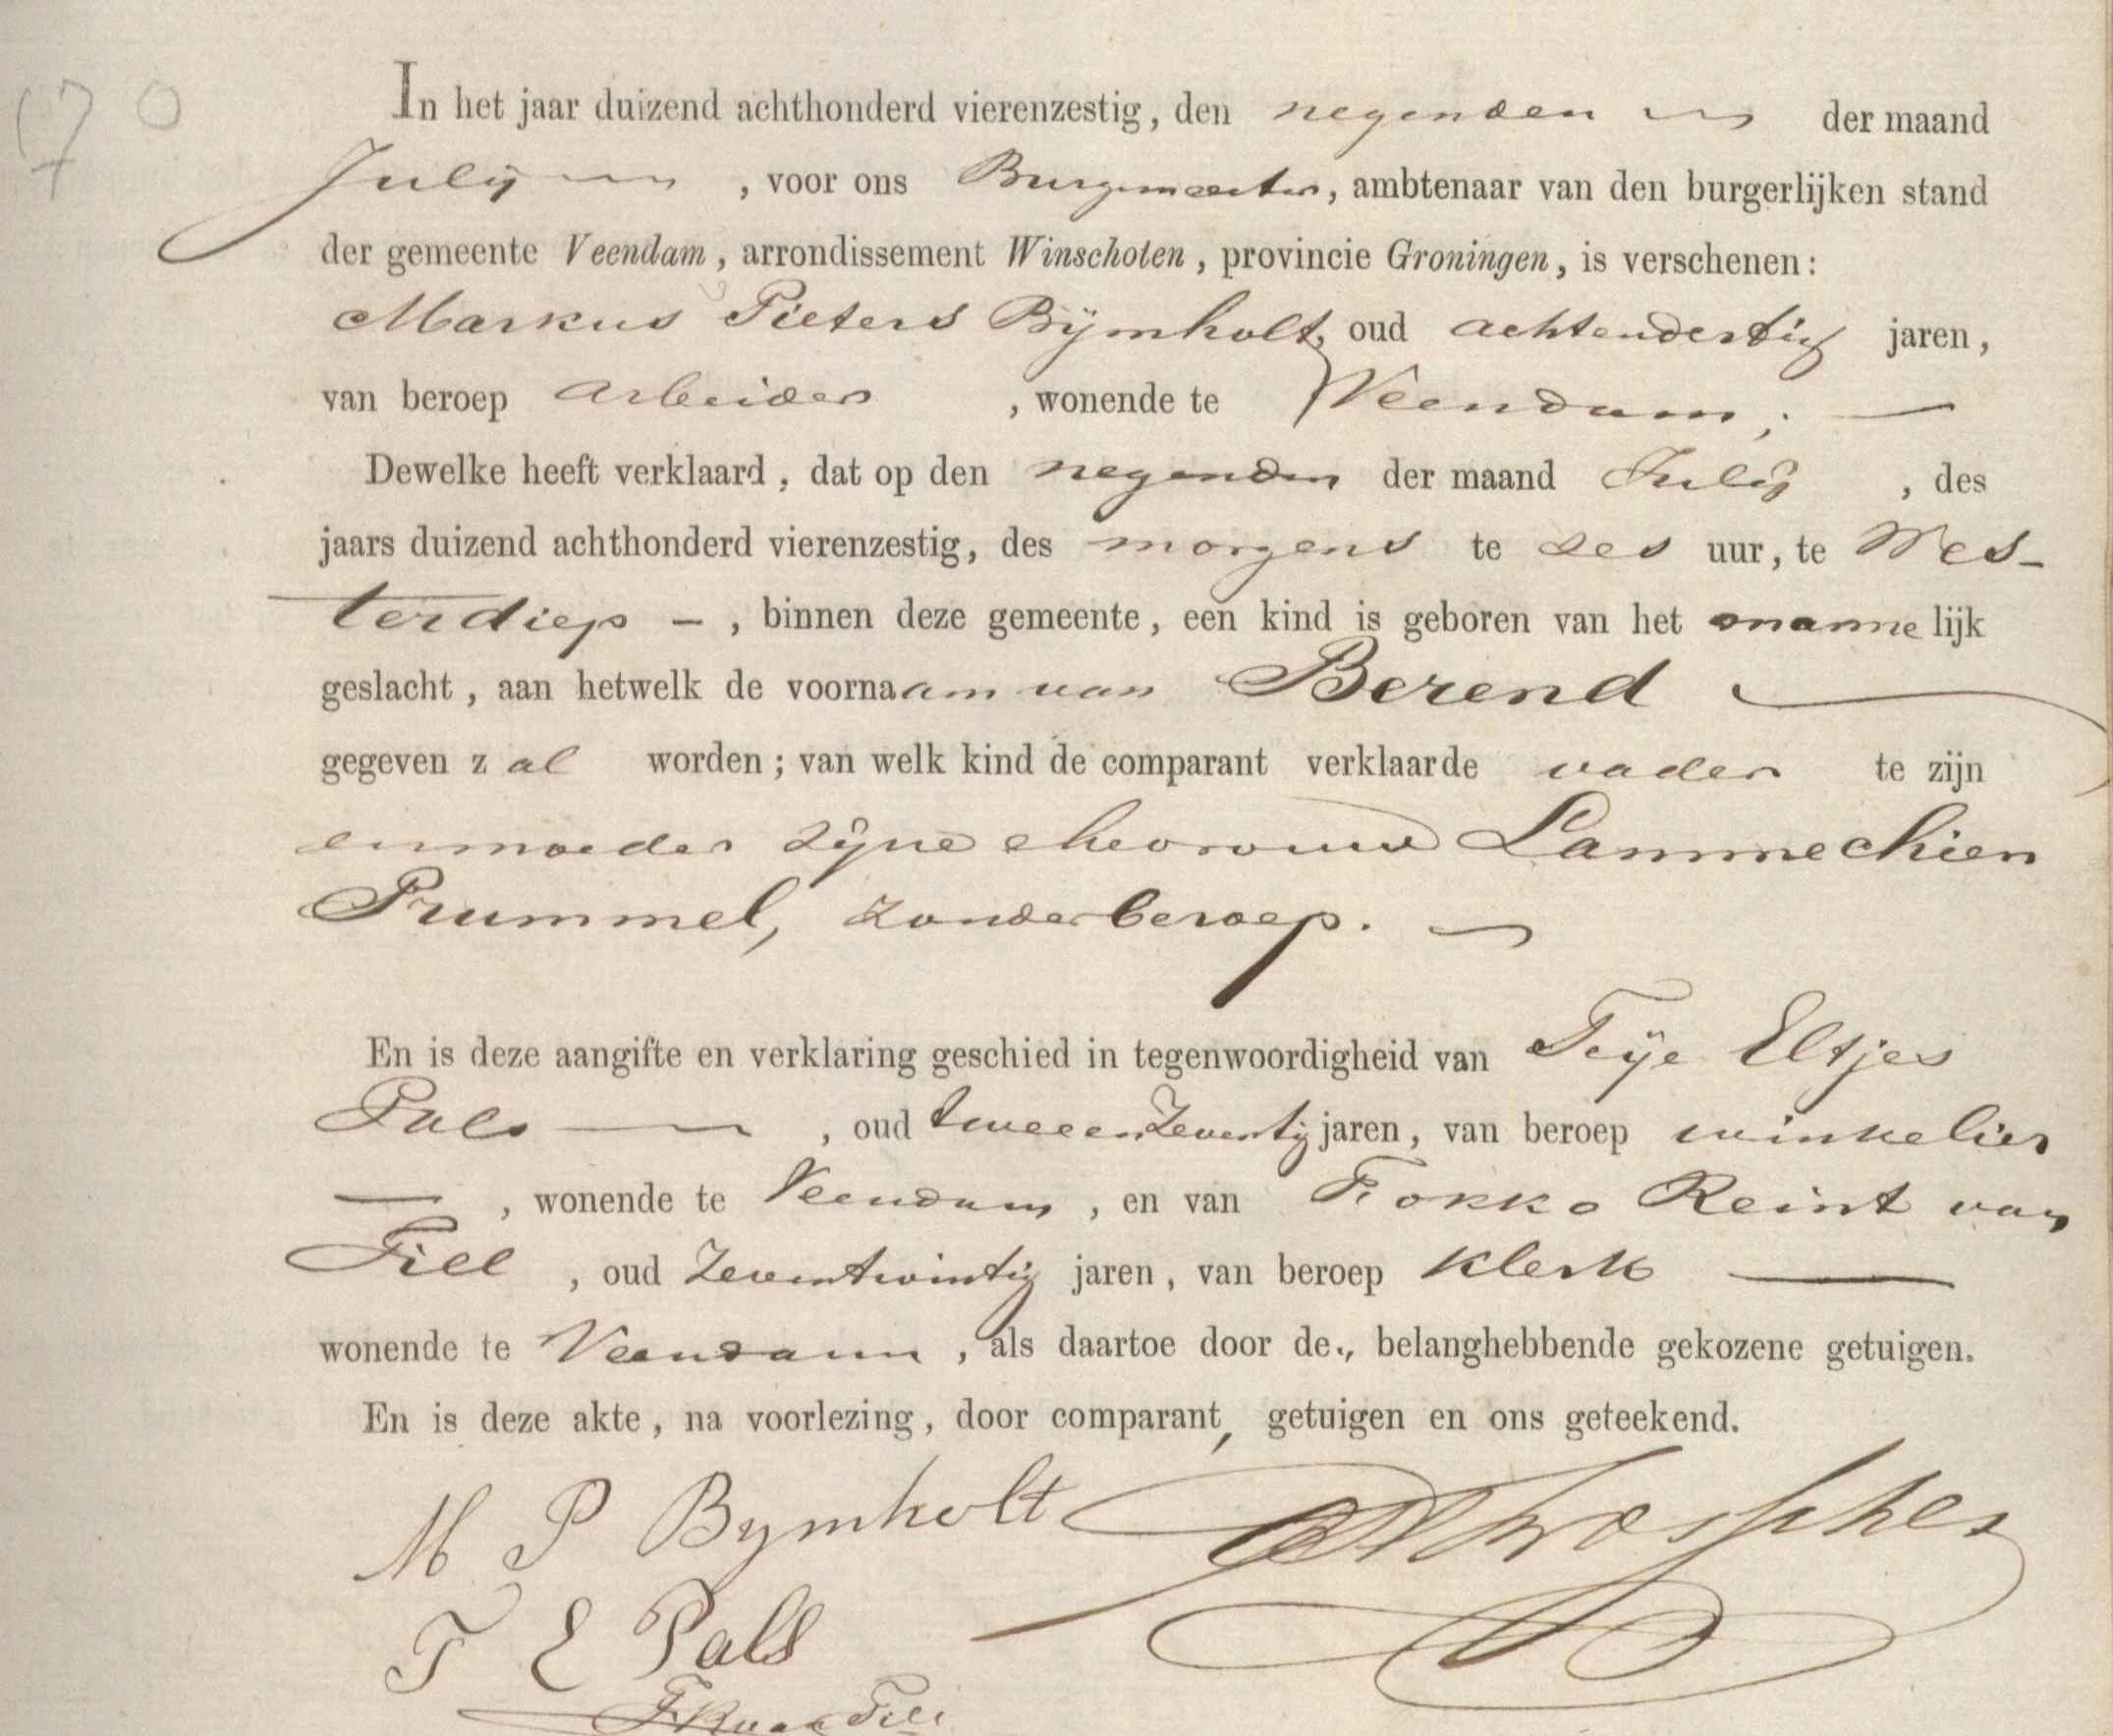 170
In het jaar duizend achthonderd vierenzestig, den negenden der maand
Julij , voor ons Burgemeester, ambtenaar van den burgerlijken stand
der gemeente Veendam, arrondissement Winschoten, provincie Groningen, is verschenen:
Markus Pieters Bijmholt, oud achtendertig jaren,
van beroep arbeider , wonende te Veendam; —
Dewelke heeft verklaard, dat op den negenden der maand Julij , des
jaars duizend achthonderd vierenzestig, des morgens te zes uur, te Wes-
terdiep - , binnen deze gemeente, een kind is geboren van het mannelijk
geslacht, aan hetwelk de voornaam van Berend —
gegeven zal worden; van welk kind de comparant verklaarde vader te zijn
en moeder zijne ehevrouw Lammechien
Prummel, zonder beroep. —
En is deze aangifte en verklaring geschied in tegenwoordigheid van Teije Eltjes
Pals — , oud tweeenzeventig jaren, van beroep winkelier
— , wonende te Veendam , en van Fokko Reint van
Tiel , oud zeventwintig jaren, van beroep klerk —
wonende te Veendam , als daartoe door de., belanghebbende gekozene getuigen.
En is deze akte, na voorlezing, door comparant, getuigen en ons geteekend.
M P Bymholt
T E Pals